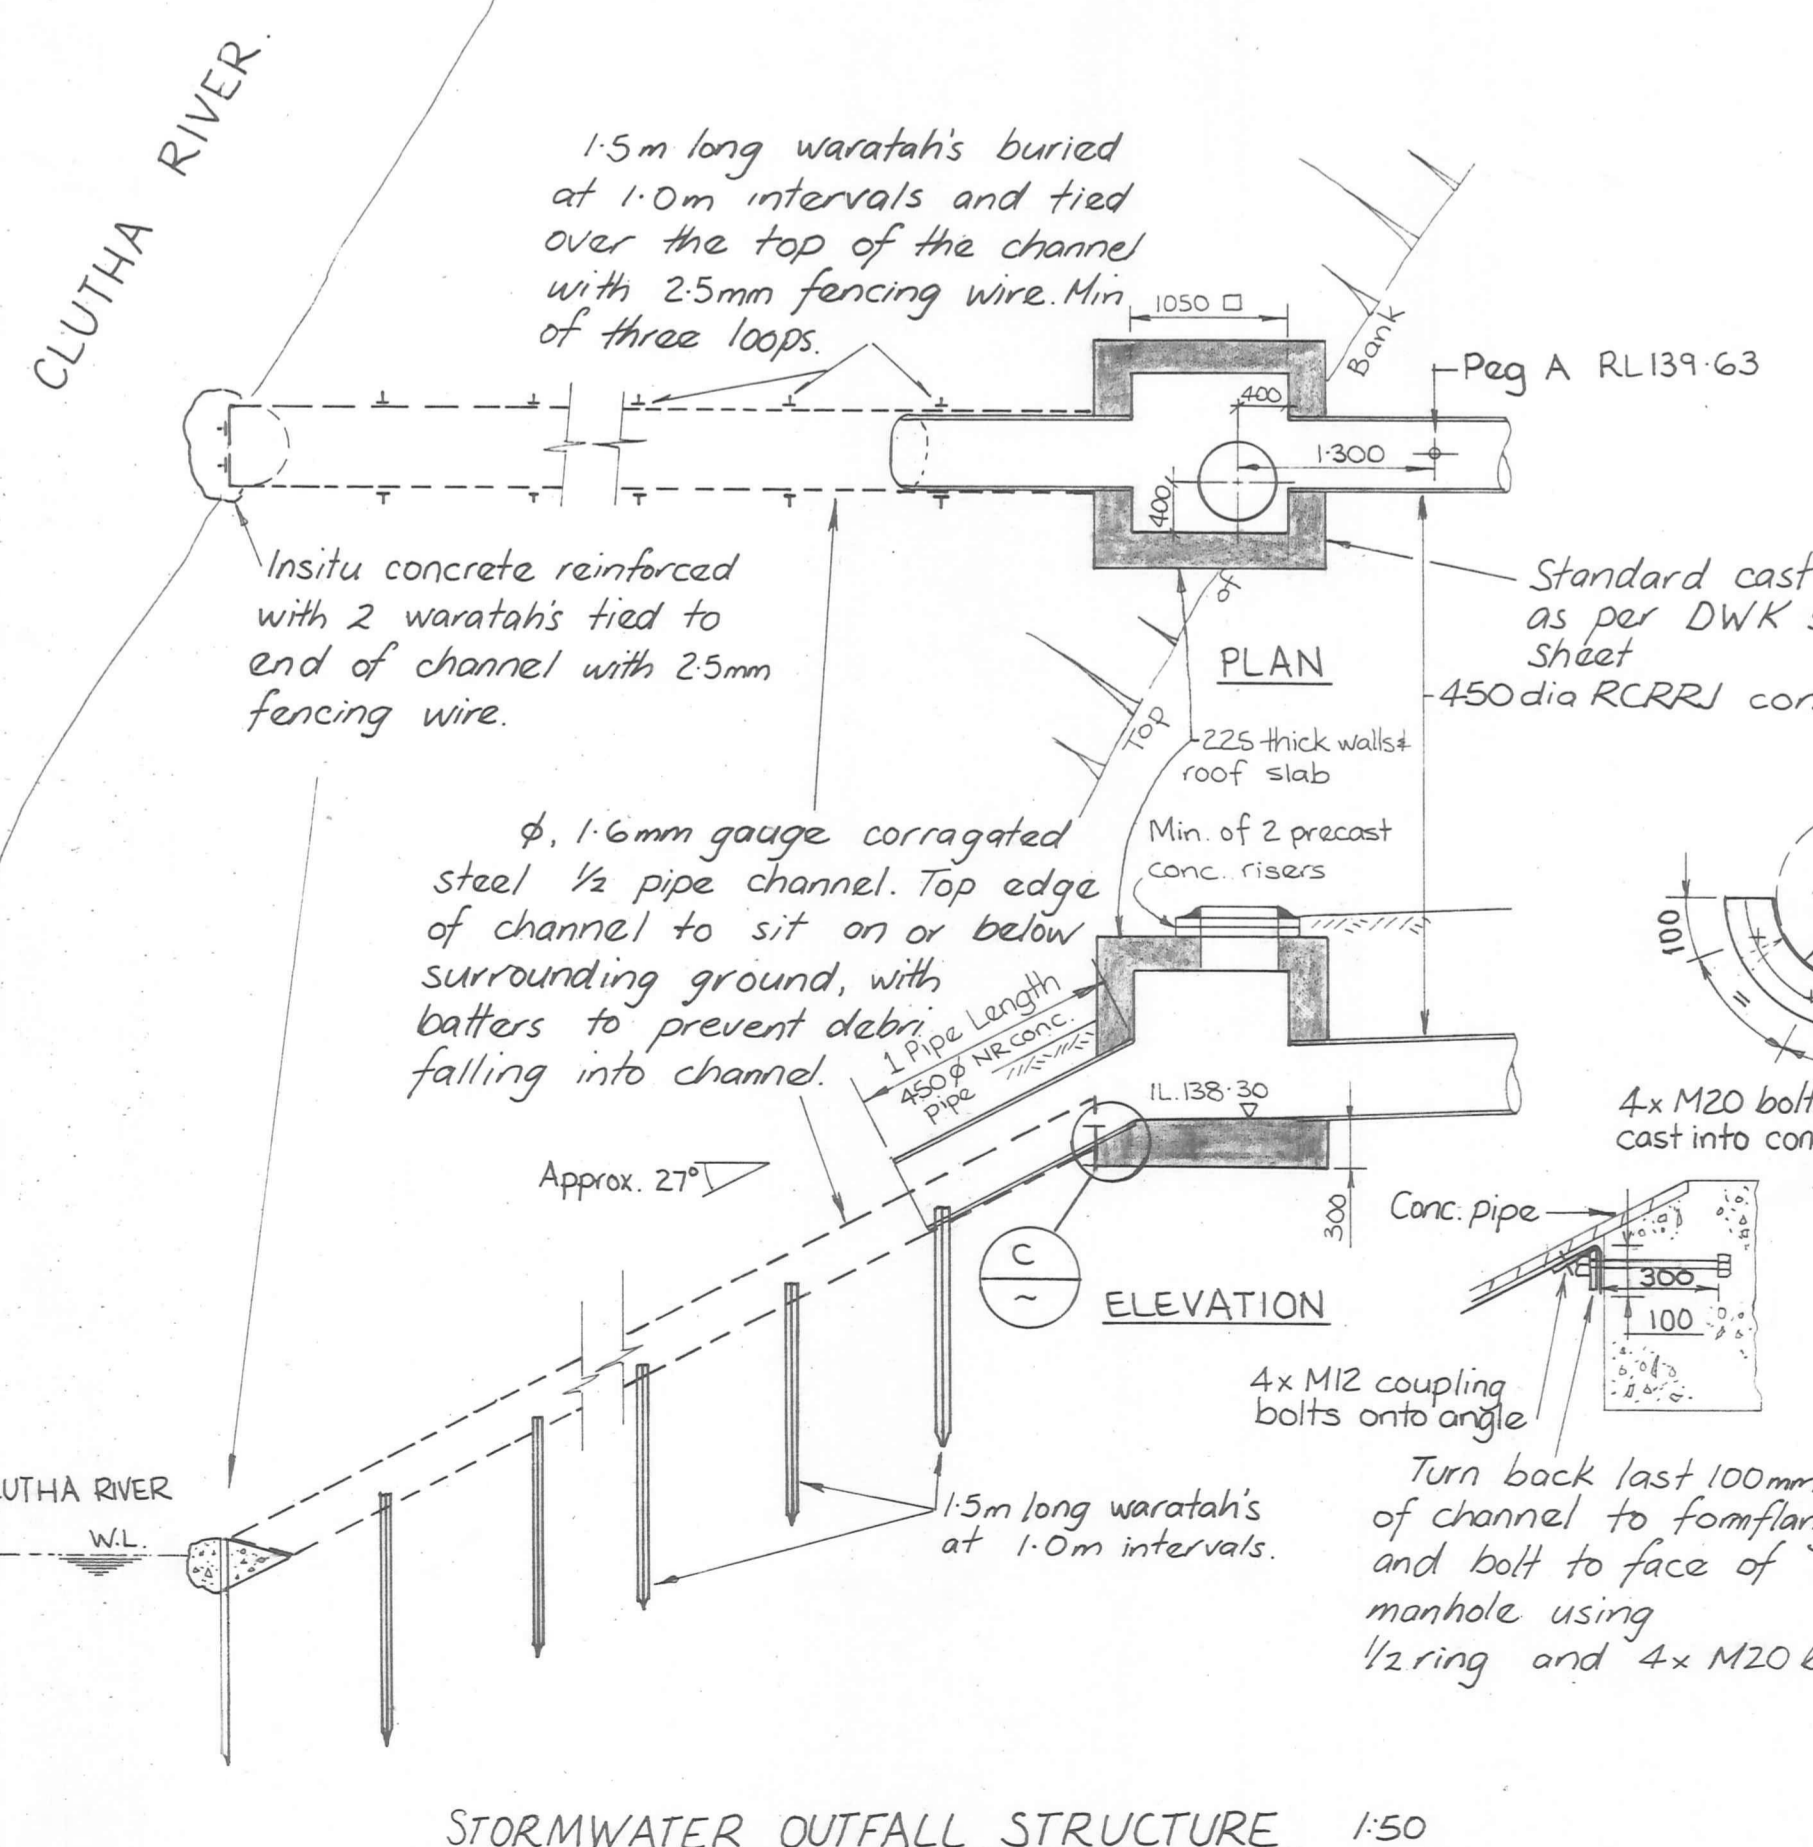 CLUTHA RIVER.
1.5m long waratah's buried
at 1.0m intervals and tied
over the top of the channel
with 2.5mm fencing wire. Min
of three loops.
1050 □
Bank
Peg A RL139.63
400
1.300
400
Insitu concrete reinforced
with 2 waratah's tied to
end of channel with 2.5mm
fencing wire.
Standard cast
as per DWK
sheet
450dia RCRRJ
of
PLAN
Top
225 thick walls &
roof slab
Min. of 2 precast
conc. risers
ϕ, 1.6mm gauge corragated
steel 1/2 pipe channel. Top edge
of channel to sit on or below
surrounding ground, with
batters to prevent debri
falling into channel.
1 Pipe Length
450ϕ NR conc.
pipe
IL.138.30
100
=
4x M20 bolt
cast into
Approx. 27°
300
Conc. pipe
300
100
C
~
ELEVATION
4x M12 coupling
bolts onto angle
1.5m long waratah's
at 1.0m intervals.
Turn back last 100mm
of channel to form flan
and bolt to face of
manhole using
1/2 ring and 4x M20
UTHA RIVER
W.L.
STORMWATER OUTFALL STRUCTURE 1:50